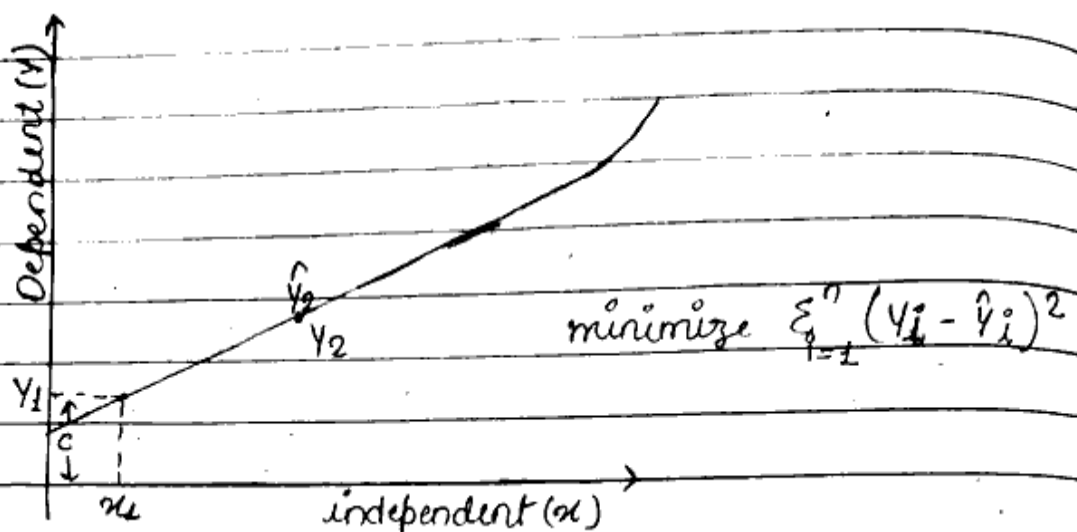 Dependent (y)
Ŷ2
Y2
minimize Σ_{i=1}^{n} (Yi - Ŷi)^2
Y1
C
x1
independent (x)